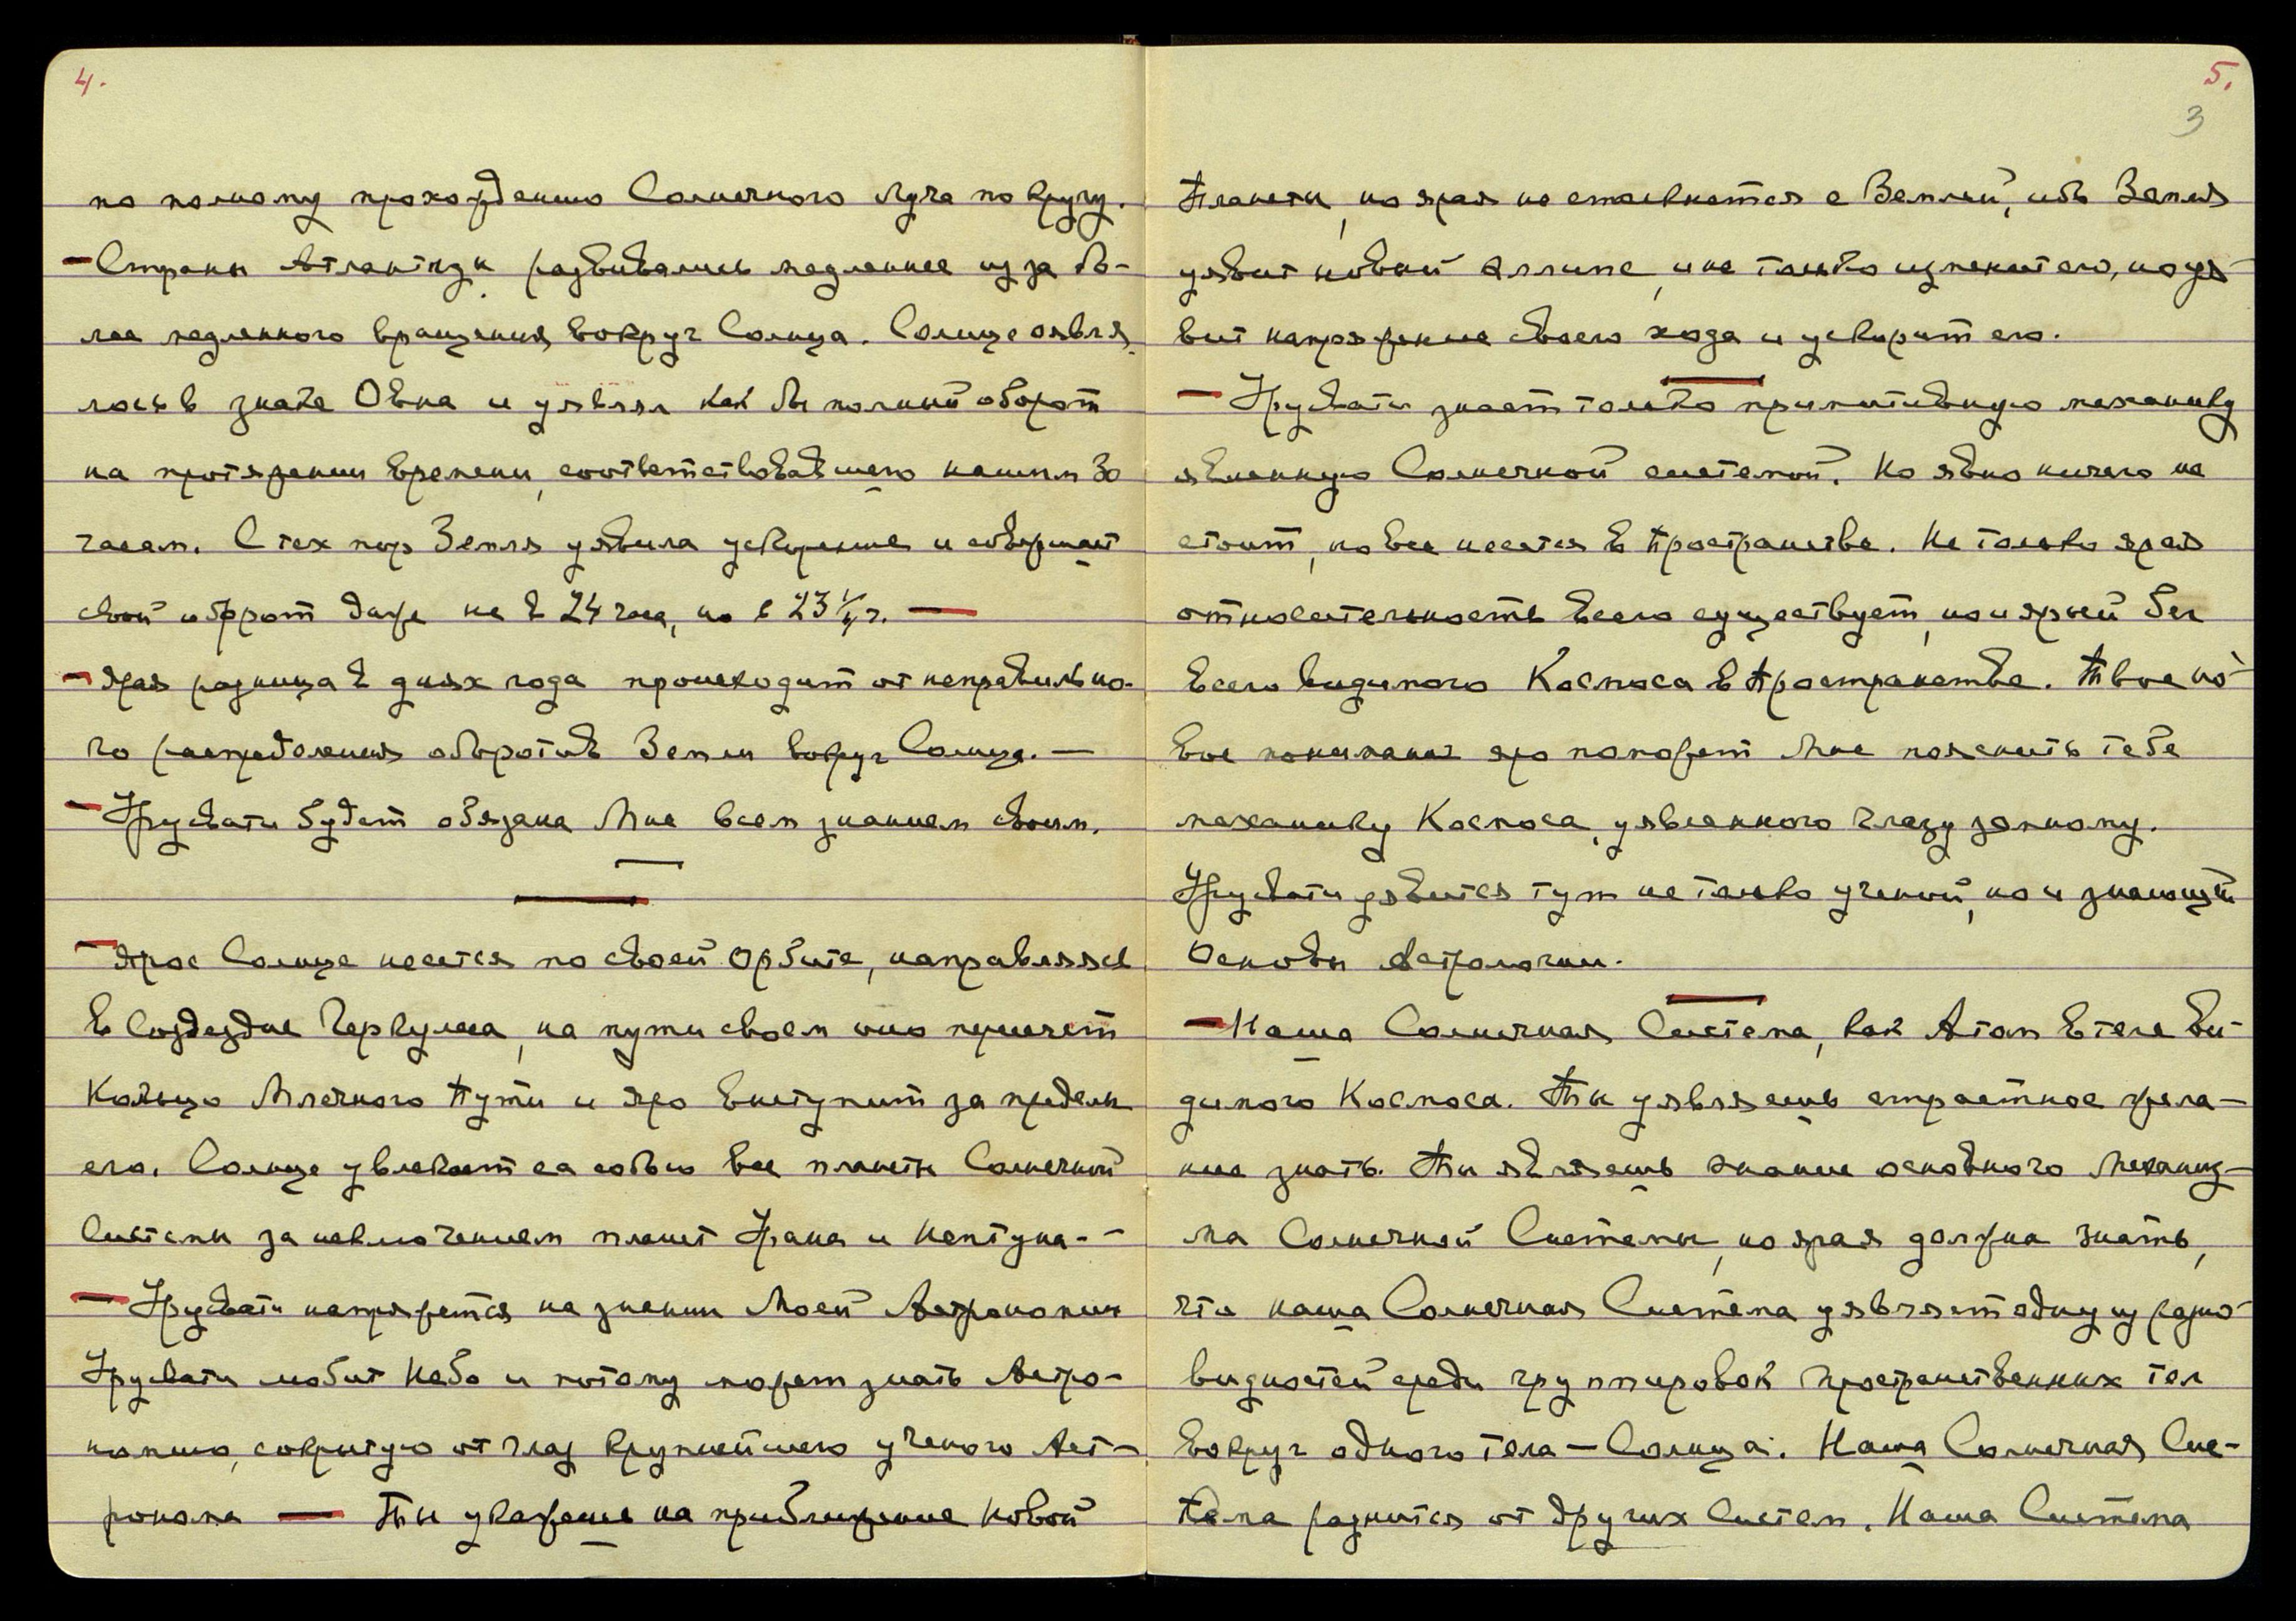 4.
по полному прохождению Солнечного Луча по кругу.
— Страны Атлантиды развивались медленнее из за бо-
лее медленного вращения вокруг Солнца. Солнце оявля-
лось в знаке Овна и уявлял как бы полный оборот
на протяжении времени, соответствовавшего нашим 30
часам. С тех пор Земля уявила ускорение и совершает
свой оборот даже не в 24 часа, но в 23 ч. —
— Ярая разница в днях года происходит от неправильно-
го распределения оборотов Земли вокруг Солнца. —
— Урусвати будет обязана Мне всем знанием своим.
— Ярое Солнце несется по своей Орбите, направляясь
в Созвездие Геркулеса, на пути своем оно пересечет
Кольцо Млечного Пути и яро выступит за пределы
его. Солнце увлекает за собою все планеты Солнечной
Системы за исключением планет Урана и Нептуна. -
— Урусвати напряжется на знании Моей Астрономии
Урусвати любит Небо и потому может знать Астро-
номию, сокрытую от глаз крупнейшего ученого Аст-
ронома — Ты укажешь на приближение Новой
5.
3
Планеты, но ярая не столкнется с Землей, ибо Земля
уявит новый эллипс, и не только изменит его, но уя-
вит напряжение своего хода и ускорит его.
— Урусвати знает только примитивную механику
явленную Солнечной системой. Но явно ничего не
стоит, но все несется в Пространстве. Не только ярая
относительность всего существует, но и ярый бег
всего видимого Космоса в Пространстве. Твое но-
вое понимание яро поможет Мне пояснить тебе
механику Космоса, уявленного глазу земному.
Урусвати уявится тут не только ученой, но и знающей
Основы Астрологии.
— Наша Солнечная Система, как Атом в теле ви-
димого Космоса. Ты уявляешь страстное жела-
ние знать. Ты являешь знание основного Механиз-
ма Солнечной Системы, но ярая должна знать,
что наша Солнечная Система уявляет одну из разно-
видностей среди группировок пространственных тел
вокруг одного тела — Солнца. Наша Солнечная Сис-
тема разнится от других Систем. Наша Система